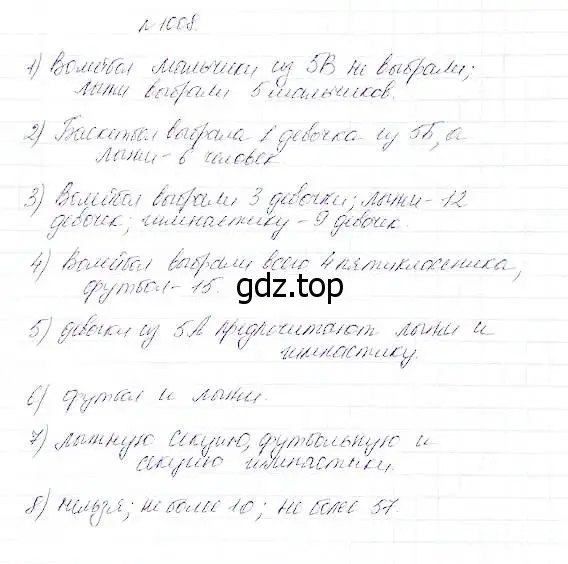 № 1008.
1) Волейбол мальчики из 5В не выбрали;
лыжи выбрали 5 мальчиков.
2) Баскетбол выбрала 1 девочка из 5Б, а
лыжи - 6 человек
3) Волейбол выбрали 3 девочки; лыжи - 12
девочек; гимнастику - 9 девочек.
4) Волейбол выбрали всего 4 пятиклассника,
футбол - 15.
gdz.top
5) девочки из 5А предпочитают лыжи и
гимнастику.
6) футбол и лыжи.
7) лыжную секцию, футбольную и
секцию гимнастики.
8) нельзя; не более 10; не более 57.